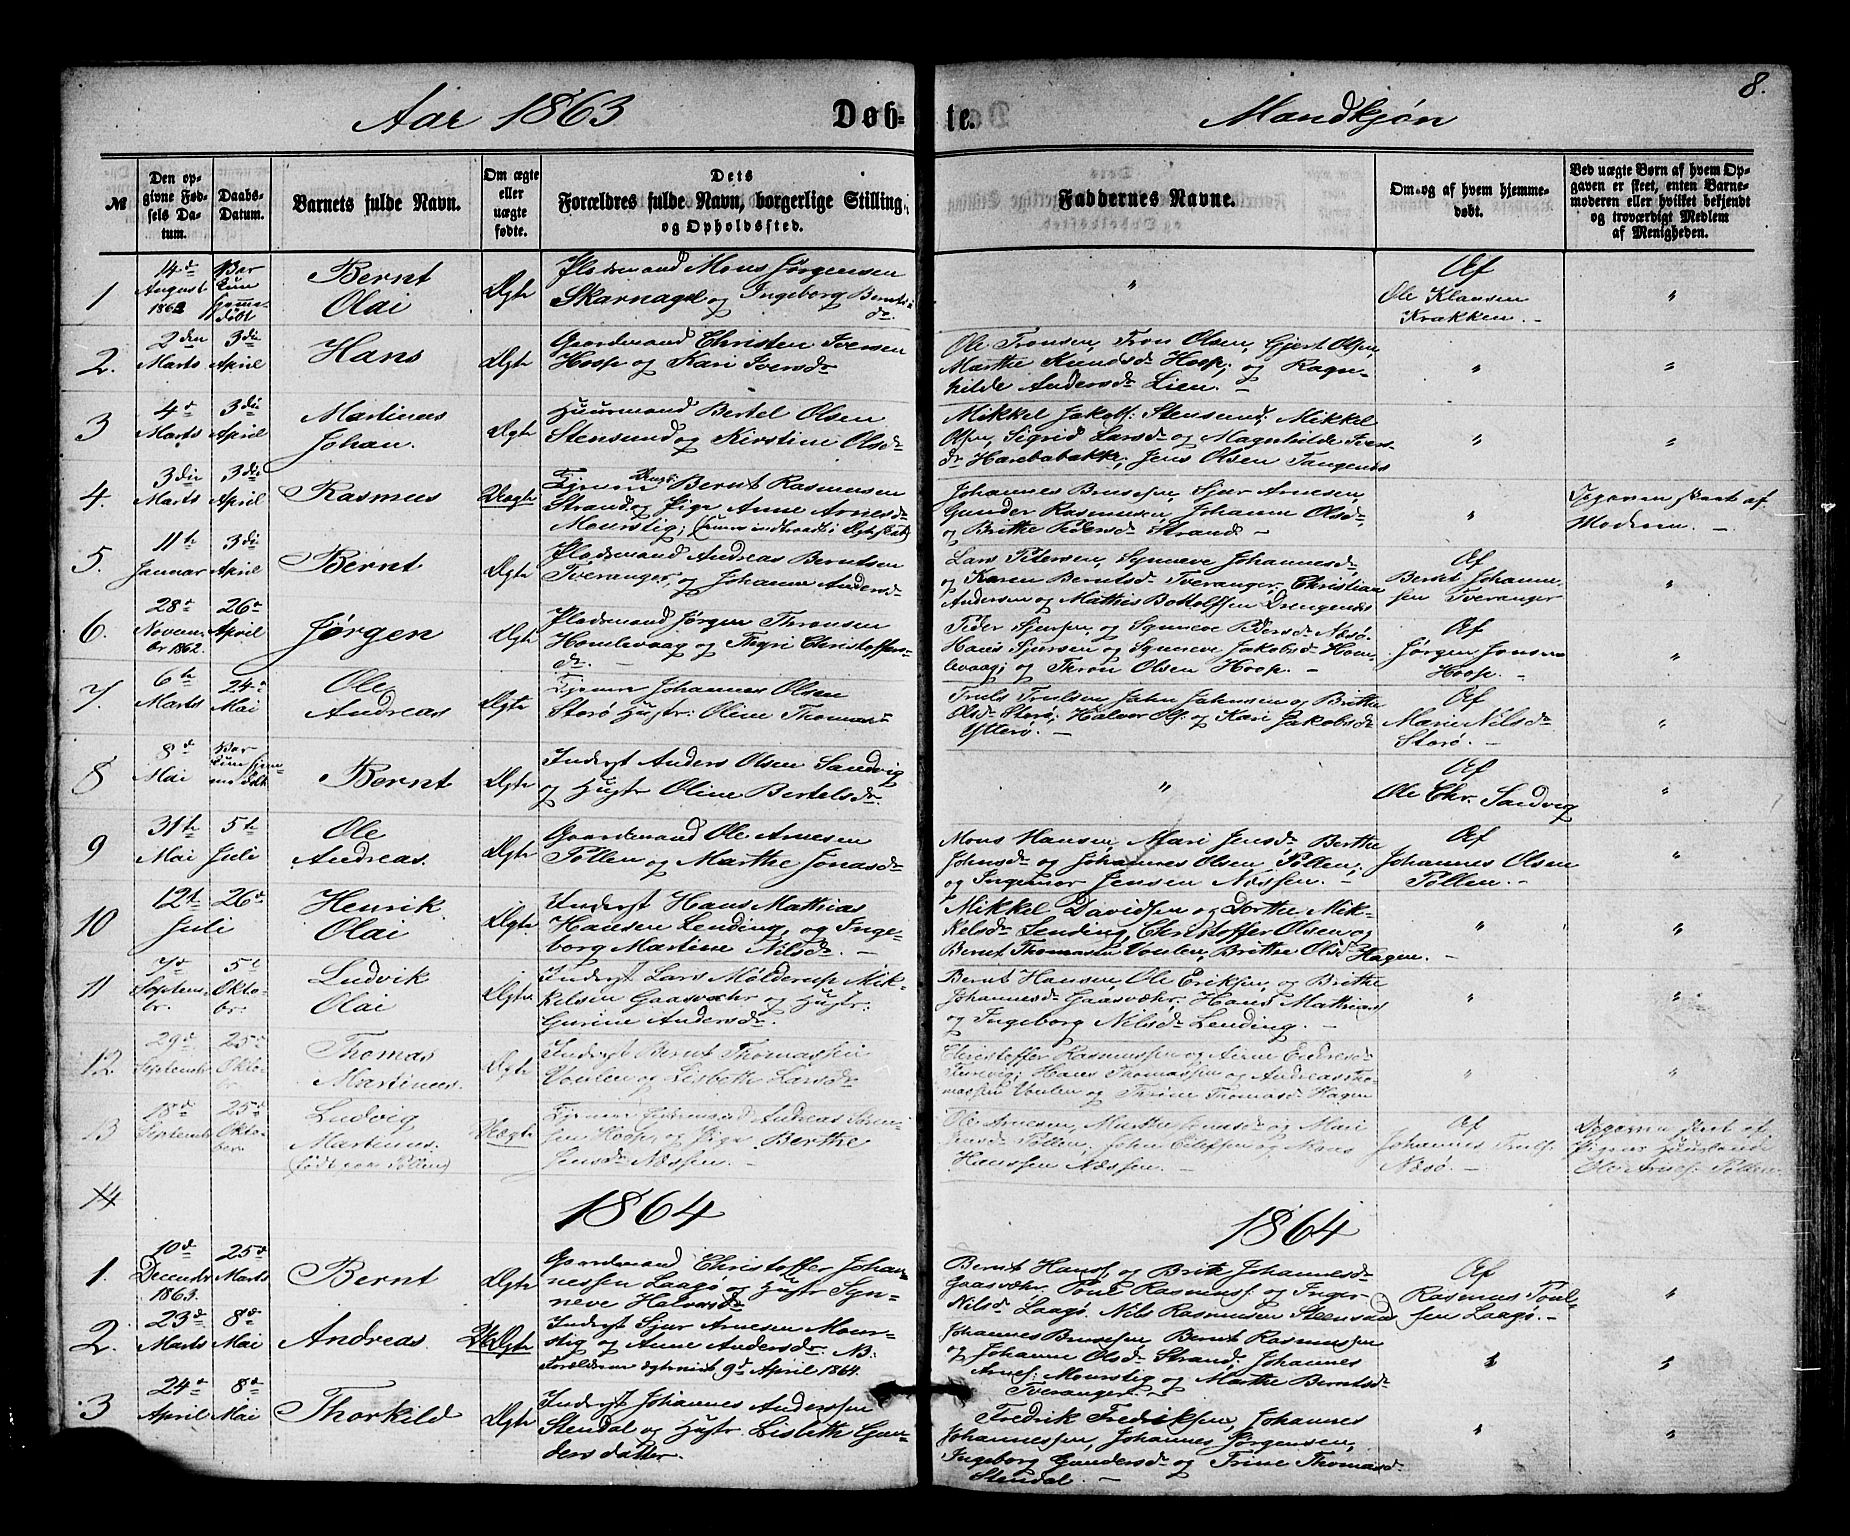 8.
Aar 1863 Døb- te. Mandkjøn
№
Den opgivne Fødsels Datum.
Daabs-Datum.
Barnets fulde Navn.
Om ægte eller uægte fødte.
Dets Forældres fulde Navn, borgerlige Stilling, og Opholdssted.
Faddernes Navne.
Om og af hvem hjemmedøbt.
Ved uægte Børn af hvem Opgaven er skeet, enten Barnemoderen eller hvilket bekjendt og troværdigt Medlem af Menigheden.
1 14d August 1862 Bar kun hjemmedøbt
Bernt Olai
Ægte
Pladsmand Mons Jørgensen
Skarnagel og Ingeborg Berntsdr.
"
Af Ole Klausen Krækken. -
"
2. 2den Marts 3die April
Hans
Ægte
Gaardmand Christen Iversen
Hoop og Kari Iversdr
Ole Tronsen, Tron Olsen, Gjert Olsen,
Marthe Knudsdr Hoop; og Ragn-
hilde Andersdr Lien. -
"
"
3 4d Marts 3die April
Martinus Johan.
Ægte
Huusmand Bertel Olsen
Stensund og Kirstine Olsdr
Mikkel Jakobs: Stensund; Mikkel
Olsen, Sigrid Larsdr og Magnhilde Ivers-
dr Harebabakke; Jens Olsen Tangenes
"
"
4. 3die Marts 3die April
Rasmus
Uægte
Bernt Rasmusen
Strand og Pige Anne Arnesdr
Mourstig;
Johannes Brusesen, Sjur Arnesen
Gunder Rasmusen, Johanne Olsdr
og Brithe Pedersdr Strand -
"
Opgaven skeet af Moderen. -
5. 11te Januar 3die April
Bernt
Ægte
Pladsmand Andreas Berntsen
Tveranger, og Johanne Andersdr
Lars Petersen, Synneve Johannesdr
og Karen Berntsdr Tveranger, Christian
Andersen og Mathis Botolfsen Drengenes
Af Bernt Johannesen Tveranger
"
6. 28de November 1862. 26de April
Jørgen
Ægte
Pladsmand Jørgen Thronsen
Homlevaag og Thyri Christoffers-
dr. -
Peder Sjursen, og Synneve Pedersdr Næsø.
Hans Sjursen og Synneve Jakobsdr Hom-
levaag; og Thron Olsen Hoop. -
Af Jørgen Jonsen Hoop. -
"
7. 6te Marts 24de Mai
Ole Andreas
Ægte
Johannes Olsen
Storø Hustr: Oline Thomasdr
Truls Trulsen, Jahn Jahnsen og Brithe
Olsdr Storø; Halvor og Kari Jakobsdr
Ytterø. -
Af Marie Nilsdr Storø. -
"
8 8de Mai Bar kun hjemmedøbt
Bernt
Ægte
Inderst Anders Olsen Sandvig
og Hustr Oline Bertelsdr.
"
Af Ole Chr. Sandvig
"
9 31te Mai 5te Juli
Ole Andreas.
Ægte
Gaardmand Ole Arnesen
Pollen og Marthe Jonasdr
Mons Hansen, Mari Jensdr, Berthe
Johnsdr og Johannes Olsen Pollen;
og Ingemar Jensen Næssen. -
Af Johannes Olsen Pollen. -
"
10 12te 26de Juli
Henrik Olai
Ægte
Inderst Hans Mathias
Hansen Lending, og Inge-
borg Martine Nilsdr. -
Mikkel Davidsen og Dorthe Mik-
kelsdr Lending, Christoffer Olsen og
Bernt Thomasen Voulen, Brithe Olsdr Hagen. -
"
"
11 7de September. 5te Oktober.
Ludvik Olai
Ægte
Inderst Lars Mølderup Mik-
kelsen Gaasvæhr og Hustr:
Gurine Andersdr.
Bernt Hansen, Ole Eriksen, og Brithe
Johannesdr Gaasvæhr, Hans Mathias
og Ingeborg Nilsdr Lending. -
"
"
12. 29de September 25de Oktober
Thomas Martinus.
Ægte
Inderst Bernt Thomassen
Voulen og Lisbeth Larsdr
Christoffer Rasmussen og Anne Endresdr
Hans Thomassen og Andreas Tho-
massen Voulen og Trine Thomasdr Hagen
"
"
13 18de September 25de Oktober
Ludvig Martinus.
(født paa Pollen)
Uægte
Andreas Søren-
sen Hoop, og Pige Berthe
Jensdr Næssen. -
Ole Arnesen, Marthe Jonasdr og Mari
Jensdr Pollen; John Olufsen og Mons
Hanssen Næssen. -
Af Johannes Trulss. Næsø. -
Opgaven skeet af
Ole Arnes: Pollen
14
1864 1864
1. 10de Decembr 1863. 25de Marts
Bernt
Ægte
Gaardmand Christoffer Johan-
nessen Laagø og Hustr Syn-
neve Halvorsdr
Bernt Hanss, og Brith Johannesdr
Gaasvæhr, Poul Rasmuss: og Inger
Nilsdr Laagø. Nils Rasmusen Steensdal
Af Rasmus Poulsen Laagø. -
"
2. 23de Marts 8de Mai
Andreas.
Ægte
Inderst Sjur Arnesen Mour-
stig og Anne Andersdr. NB.
Forældrene ægteviet 9de April 1864.
Johannes Brusesen Bernt Rasmussen
og Johanne Olsdr Strand; Johannes
Arnes: Mourstig og Marthe Berntsdr
Tveranger. -
"
"
3 24de April 8de Mai
Thorkild
Ægte
Inderst Johannes Anderssen
Stendal og Hustr Lisbeth Gun-
ders datter.
Fredrik Fredriksen, Johannes
Johannessen, Johannes Jørgensen,
Ingeborg Gundersdr og Trine Thomasdr
Stendal. -
"
"